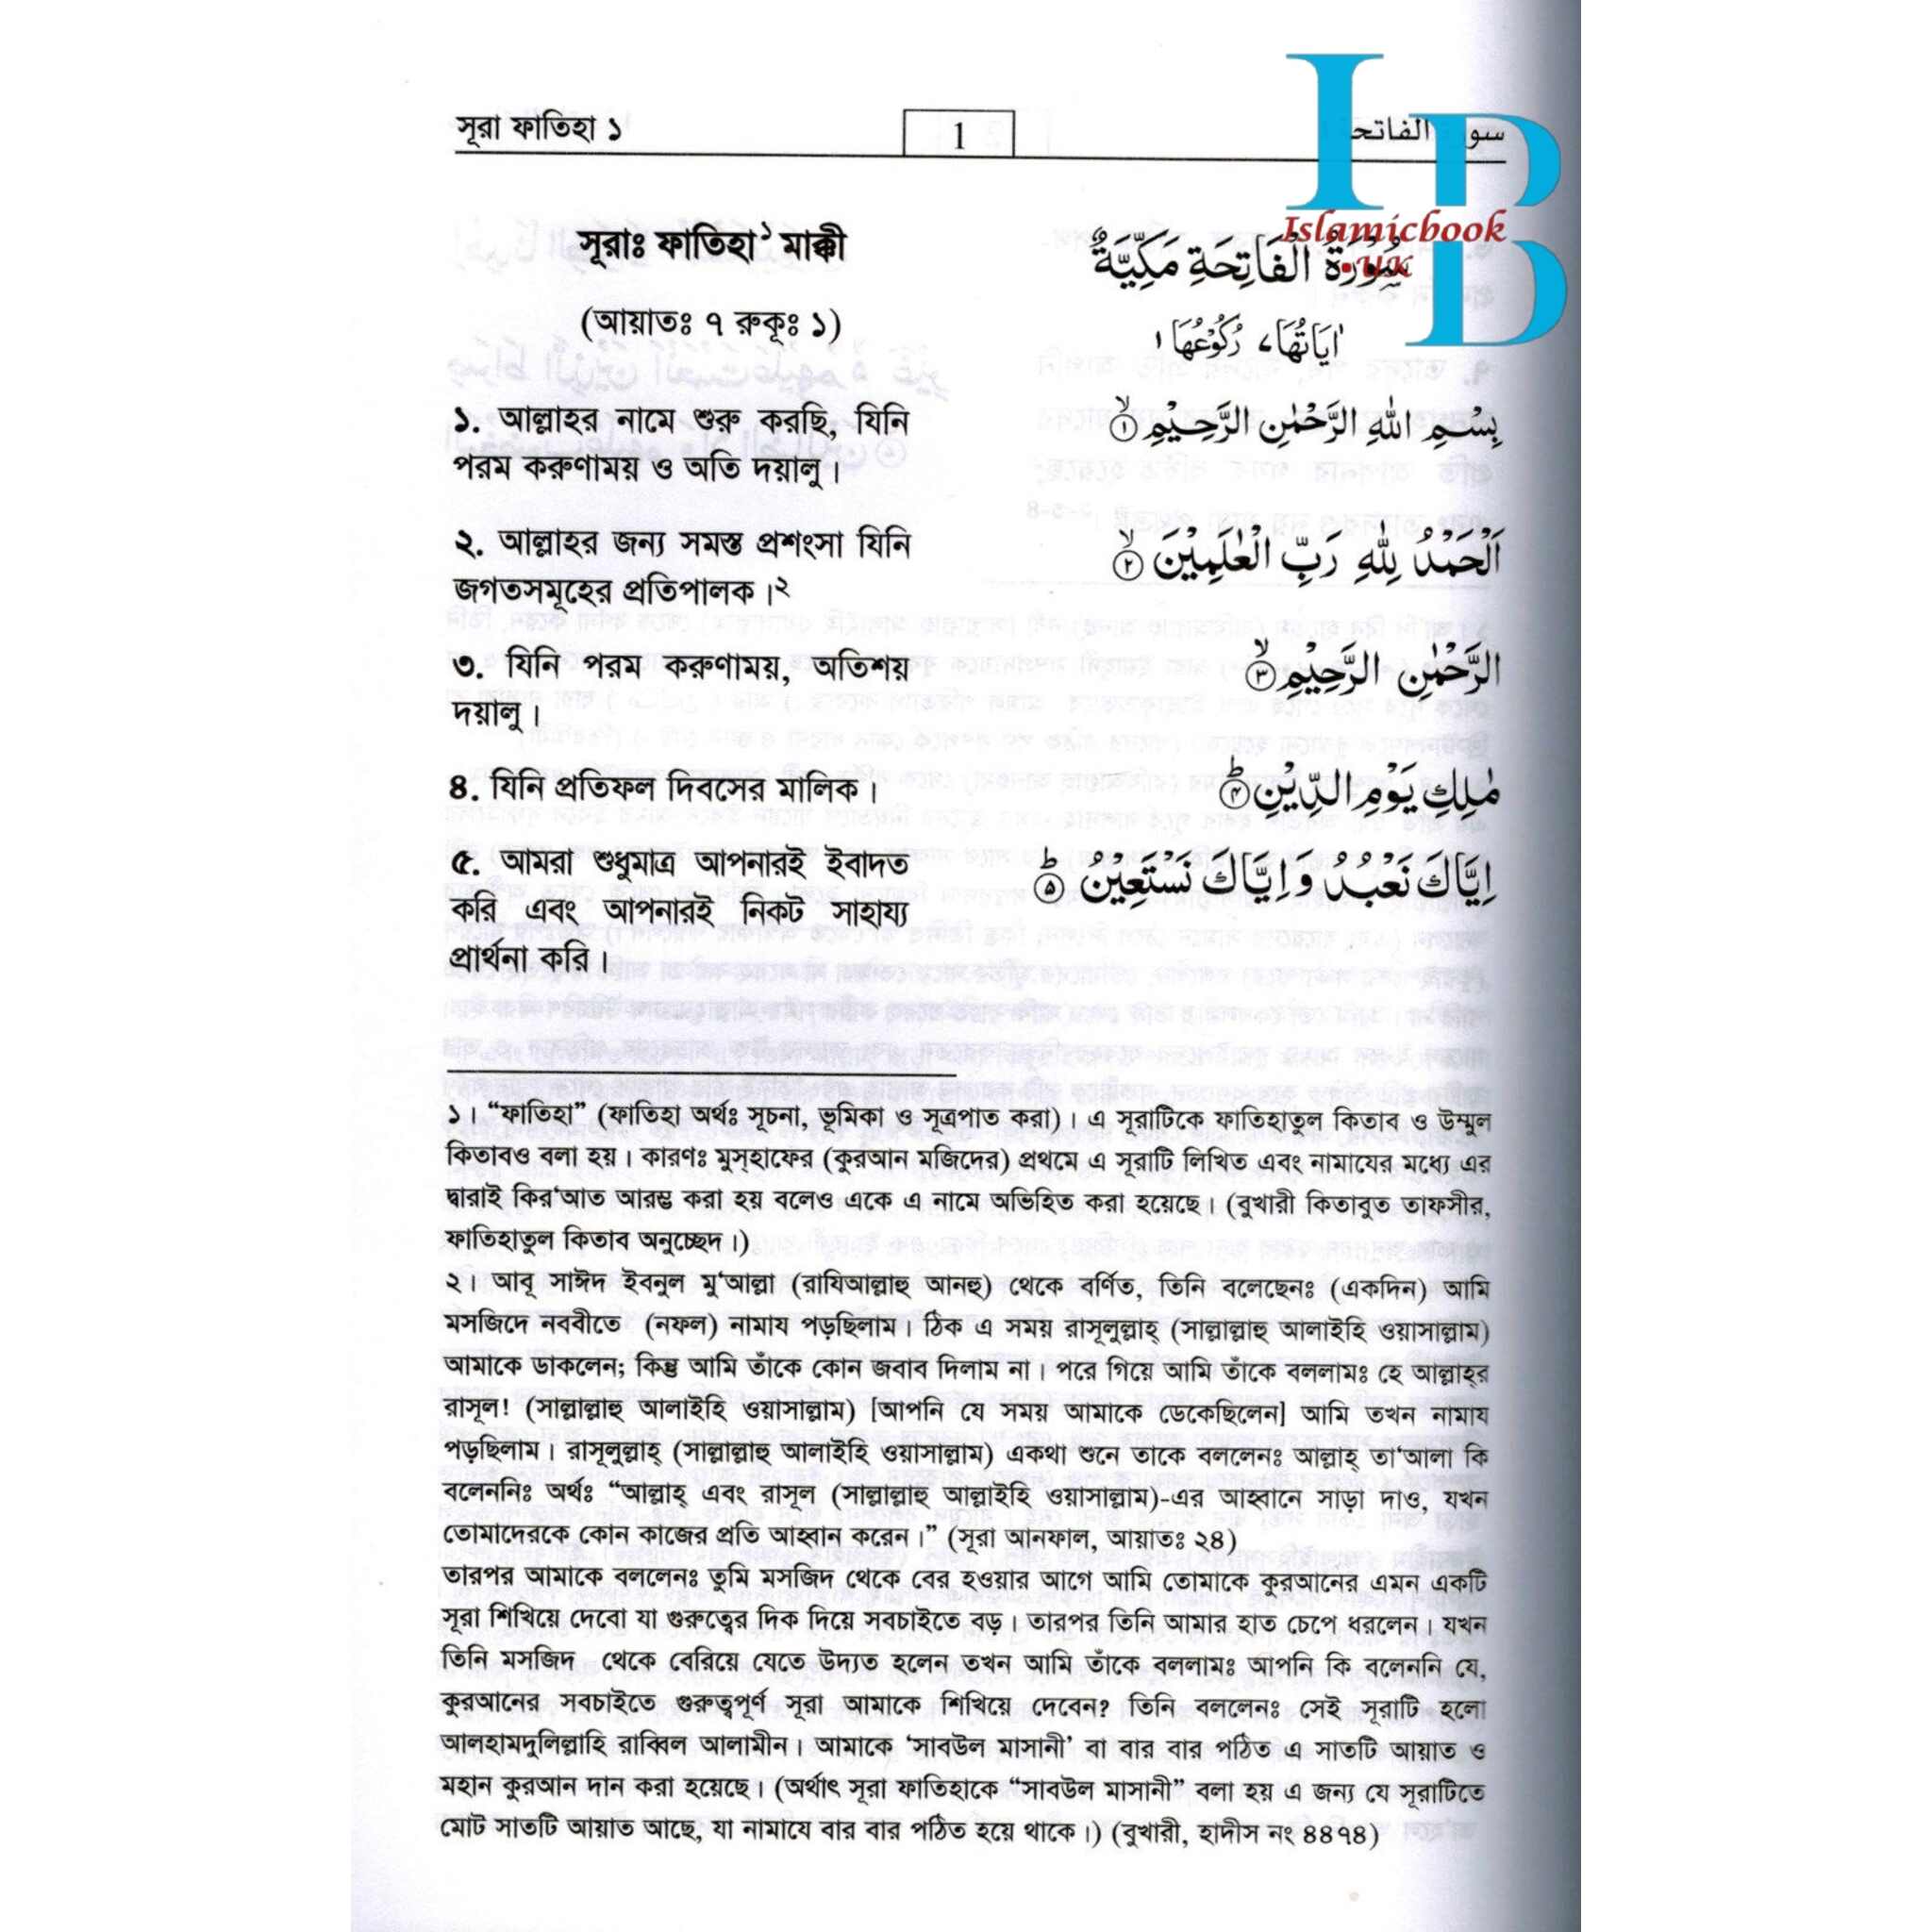 সূরা ফাতিহা ১
1
سورة الفاتحة
Islamicbook
.UK
সূরাঃ ফাতিহা¹ মাক্কী
سُوْرَةُ الْفَاتِحَةِ مَكِّيَّةٌ
(আয়াতঃ ৭ রুকূঃ ১)
اٰيَاتُهَا ٧ رُكُوْعُهَا ١
১. আল্লাহর নামে শুরু করছি, যিনি
পরম করুণাময় ও অতি দয়ালু।
بِسْمِ اللّٰهِ الرَّحْمٰنِ الرَّحِيْمِ ۙ﴿١﴾
২. আল্লাহর জন্য সমস্ত প্রশংসা যিনি
জগতসমূহের প্রতিপালক।²
اَلْحَمْدُ لِلّٰهِ رَبِّ الْعٰلَمِيْنَ ۙ﴿٢﴾
৩. যিনি পরম করুণাময়, অতিশয়
দয়ালু।
الرَّحْمٰنِ الرَّحِيْمِ ۙ﴿٣﴾
৪. যিনি প্রতিফল দিবসের মালিক।
مٰلِكِ يَوْمِ الدِّيْنِ ؕ﴿٤﴾
৫. আমরা শুধুমাত্র আপনারই ইবাদত
করি এবং আপনারই নিকট সাহায্য
প্রার্থনা করি।
اِيَّاكَ نَعْبُدُ وَاِيَّاكَ نَسْتَعِيْنُ ؕ﴿٥﴾
১। “ফাতিহা” (ফাতিহা অর্থঃ সূচনা, ভূমিকা ও সূত্রপাত করা)। এ সূরাটিকে ফাতিহাতুল কিতাব ও উম্মুল
কিতাবও বলা হয়। কারণঃ মুস্হাফের (কুরআন মজিদের) প্রথমে এ সূরাটি লিখিত এবং নামাযের মধ্যে এর
দ্বারাই কির‘আত আরম্ভ করা হয় বলেও একে এ নামে অভিহিত করা হয়েছে। (বুখারী কিতাবুত তাফসীর,
ফাতিহাতুল কিতাব অনুচ্ছেদ।)
২। আবূ সাঈদ ইবনুল মু‘আল্লা (রাযিআল্লাহু আনহু) থেকে বর্ণিত, তিনি বলেছেনঃ (একদিন) আমি
মসজিদে নববীতে (নফল) নামায পড়ছিলাম। ঠিক এ সময় রাসূলুল্লাহ্ (সাল্লাল্লাহু আলাইহি ওয়াসাল্লাম)
আমাকে ডাকলেন; কিন্তু আমি তাঁকে কোন জবাব দিলাম না। পরে গিয়ে আমি তাঁকে বললামঃ হে আল্লাহ্‌র
রাসূল! (সাল্লাল্লাহু আলাইহি ওয়াসাল্লাম) [আপনি যে সময় আমাকে ডেকেছিলেন] আমি তখন নামায
পড়ছিলাম। রাসূলুল্লাহ্ (সাল্লাল্লাহু আলাইহি ওয়াসাল্লাম) একথা শুনে তাকে বললেনঃ আল্লাহ্ তা‘আলা কি
বলেননিঃ অর্থঃ “আল্লাহ্ এবং রাসূল (সাল্লাল্লাহু আল্লাইহি ওয়াসাল্লাম)-এর আহ্বানে সাড়া দাও, যখন
তোমাদেরকে কোন কাজের প্রতি আহ্বান করেন।” (সূরা আনফাল, আয়াতঃ ২৪)
তারপর আমাকে বললেনঃ তুমি মসজিদ থেকে বের হওয়ার আগে আমি তোমাকে কুরআনের এমন একটি
সূরা শিখিয়ে দেবো যা গুরুত্বের দিক দিয়ে সবচাইতে বড়। তারপর তিনি আমার হাত চেপে ধরলেন। যখন
তিনি মসজিদ থেকে বেরিয়ে যেতে উদ্যত হলেন তখন আমি তাঁকে বললামঃ আপনি কি বলেননি যে,
কুরআনের সবচাইতে গুরুত্বপূর্ণ সূরা আমাকে শিখিয়ে দেবেন? তিনি বললেনঃ সেই সূরাটি হলো
আলহামদুলিল্লাহি রাব্বিল আলামীন। আমাকে ‘সাবউল মাসানী’ বা বার বার পঠিত এ সাতটি আয়াত ও
মহান কুরআন দান করা হয়েছে। (অর্থাৎ সূরা ফাতিহাকে “সাবউল মাসানী” বলা হয় এ জন্য যে সূরাটিতে
মোট সাতটি আয়াত আছে, যা নামাযে বার বার পঠিত হয়ে থাকে।) (বুখারী, হাদীস নং ৪৪৭৪)